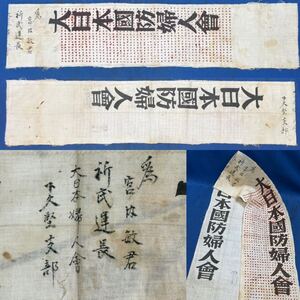 大日本國防婦人會
為
宮内敏君
祈武運長
大日本國防婦人會
下久堅支部
為
宮内敏君
祈武運長
大日本婦人會
下久堅支部
大日本國防婦人會
日本國防婦人會